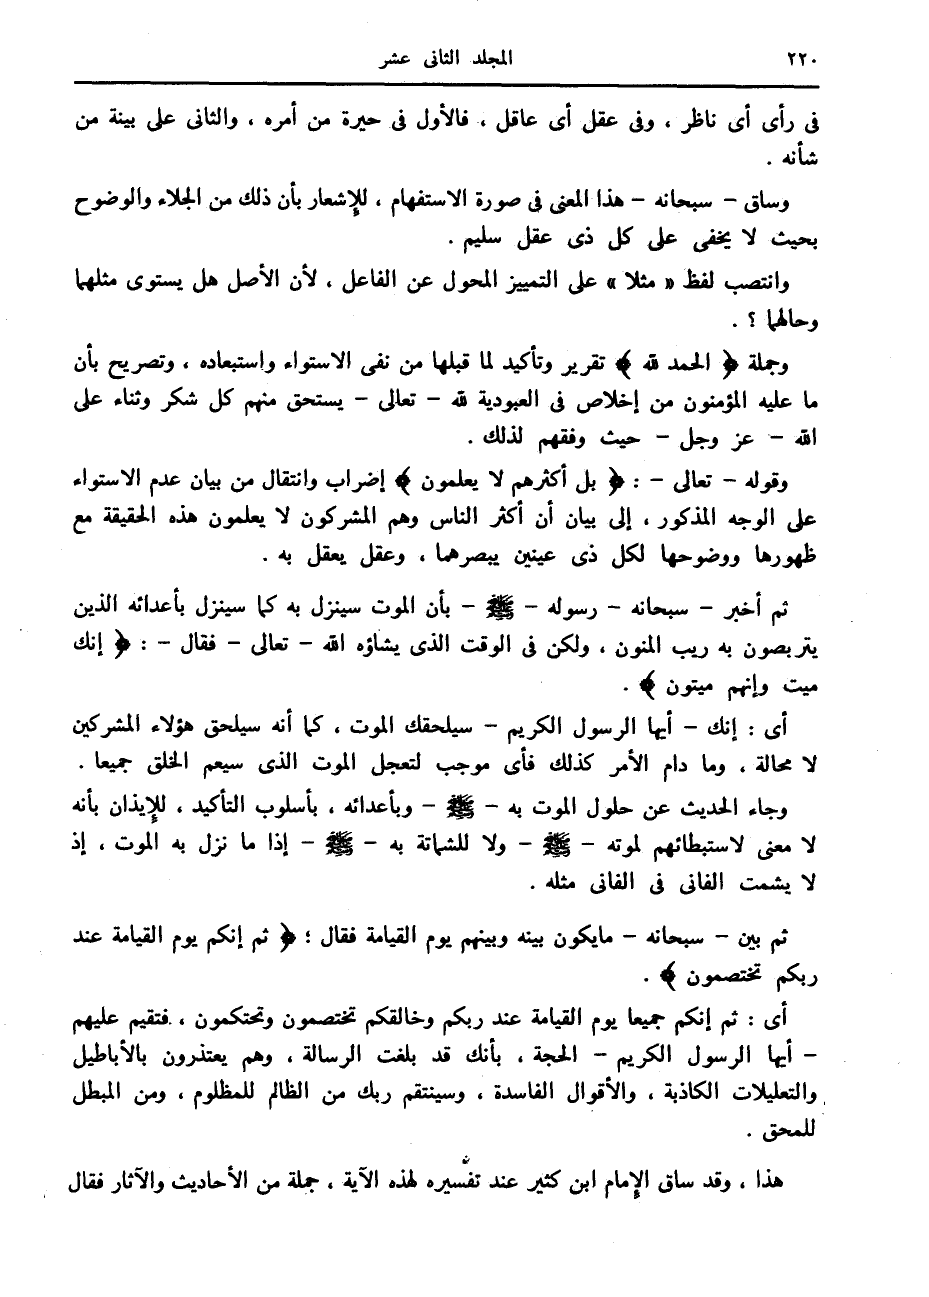 ٢٢٠ المجلد الثانى عشر
فى رأى أى ناظر ، وفى عقل أى عاقل ، فالأول فى حيرة من أمره ، والثانى على بينة من
شأنه .
وساق – سبحانه – هذا المعنى فى صورة الاستفهام ، للإشعار بأن ذلك من الجلاء والوضوح
بحيث لا يخفى على كل ذى عقل سليم .
وانتصب لفظ « مثلا » على التمييز المحول عن الفاعل ، لأن الأصل هل يستوى مثلهما
وحالهما ؟ .
وجملة ﴿ الحمد لله ﴾ تقرير وتأكيد لما قبلها من نفى الاستواء واستبعاده ، وتصريح بأن
ما عليه المؤمنون من إخلاص فى العبودية لله – تعالى – يستحق منهم كل شكر وثناء على
الله – عز وجل – حيث وفقهم لذلك .
وقوله – تعالى – : ﴿ بل أكثرهم لا يعلمون ﴾ إضراب وانتقال من بيان عدم الاستواء
على الوجه المذكور ، إلى بيان أن أكثر الناس وهم المشركون لا يعلمون هذه الحقيقة مع
ظهورها ووضوحها لكل ذى عينين يبصرهما ، وعقل يعقل به .
ثم أخبر – سبحانه – رسوله – ﷺ – بأن الموت سينزل به كما سينزل بأعدائه الذين
يتربصون به ريب المنون ، ولكن فى الوقت الذى يشاؤه الله – تعالى – فقال – : ﴿ إنك
ميت وإنهم ميتون ﴾ .
أى : إنك – أيها الرسول الكريم – سيلحقك الموت ، كما أنه سيلحق هؤلاء المشركين
لا محالة ، وما دام الأمر كذلك فأى موجب لتعجل الموت الذى سيعم الخلق جميعا .
وجاء الحديث عن حلول الموت به – ﷺ – وبأعدائه ، بأسلوب التأكيد ، للإيذان بأنه
لا معنى لاستبطائهم لموته – ﷺ – ولا للشماتة به – ﷺ – إذا ما نزل به الموت ، إذ
لا يشمت الفانى فى الفانى مثله .
ثم بين – سبحانه – مايكون بينه وبينهم يوم القيامة فقال ؛ ﴿ ثم إنكم يوم القيامة عند
ربكم تختصمون ﴾ .
أى : ثم إنكم جميعا يوم القيامة عند ربكم وخالقكم تختصمون وتحتكمون ، فتقيم عليهم
– أيها الرسول الكريم – الحجة ، بأنك قد بلغت الرسالة ، وهم يعتذرون بالأباطيل
والتعليلات الكاذبة ، والأقوال الفاسدة ، وسينتقم ربك من الظالم للمظلوم ، ومن المبطل
للمحق .
هذا ، وقد ساق الإمام ابن كثير عند تفسيره لهذه الآية ، جملة من الأحاديث والآثار فقال